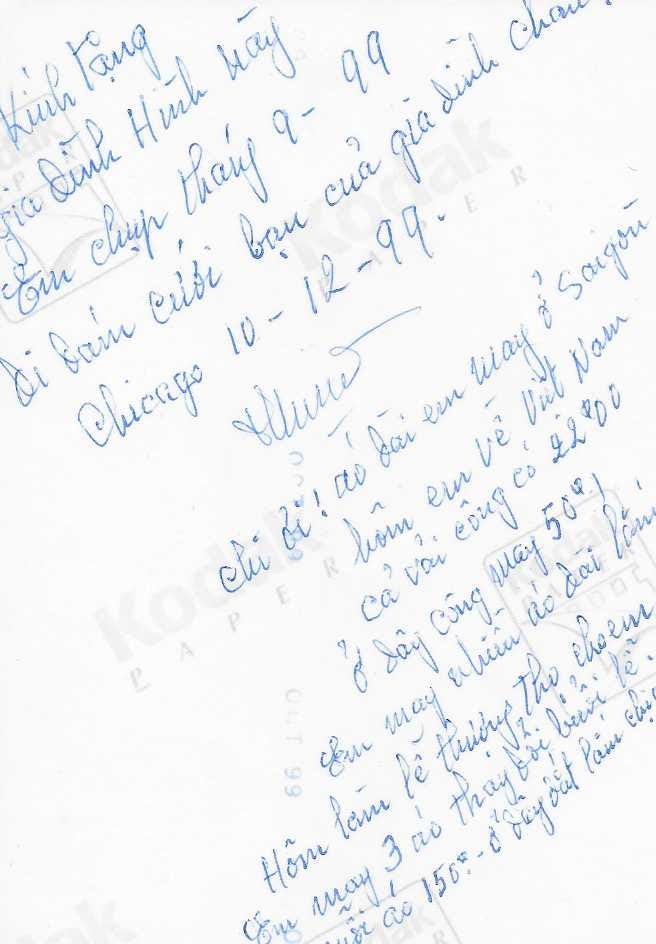 Kính tặng
gia đình Hình này
Em chụp tháng 9 - 99
đi đám cưới bạn của gia đình cháu.
Chicago 10-12-99.
Chị ơi! áo dài em may ở Saigon
hôm em về Việt Nam
cả vải công có 22$00
ở đây công may 50$!
Em may nhiều áo dài lắm
Hôm làm lễ thượng thọ cho em
Em may 3 áo thay đổi buổi lễ.
mỗi áo 150$ - ở đây đắt lắm chị
Kodak
PAPER
Kodak
PAPER
OCT 99